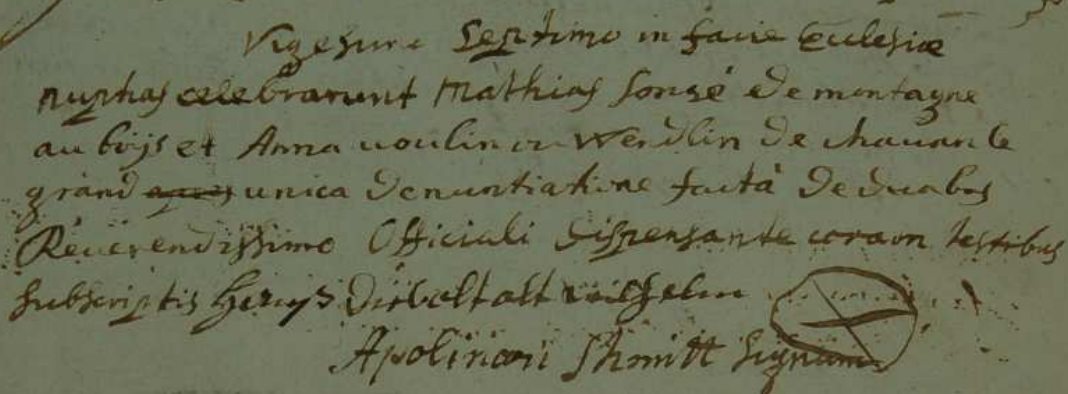 Vigesima Septimo in facie Ecclesiæ
nuptias celebrarunt Mathias Sonsé de montagne
au buys et Anna voulin ou Werdlin de chauan le
grand unica denuntiatione facta de duabus
Reverendissimo Officiali dispensante coram testibus
subscriptis Dieboltalt
Apolinari Shmitt signum